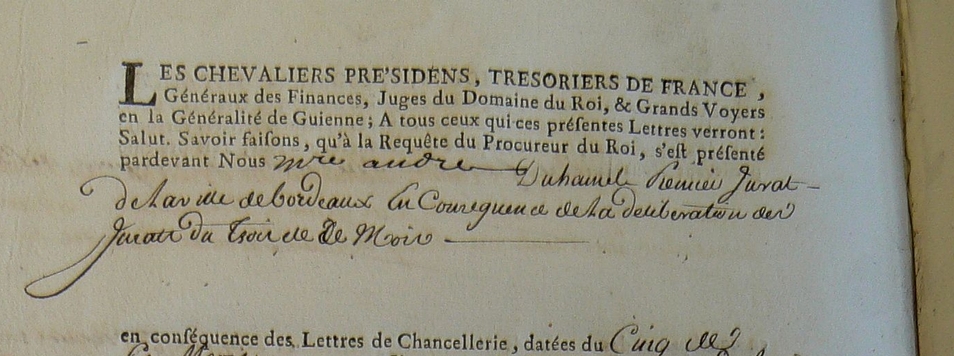 LES CHEVALIERS PRE'SIDENS, TRESORIERS DE FRANCE,
Généraux des Finances, Juges du Domaine du Roi, & Grands Voyers
en la Généralité de Guienne; A tous ceux qui ces préſentes Lettres verront:
Salut. Savoir faiſons, qu'à la Requête du Procureur du Roi, s'eſt préſenté
pardevant Nous mre andre Duhamel Premier Jurat
de la ville de bordeaux En Consequence de la deliberation des
Jurats du trois de Ce Mois
en conſéquence des Lettres de Chancellerie, datées du Cinq de